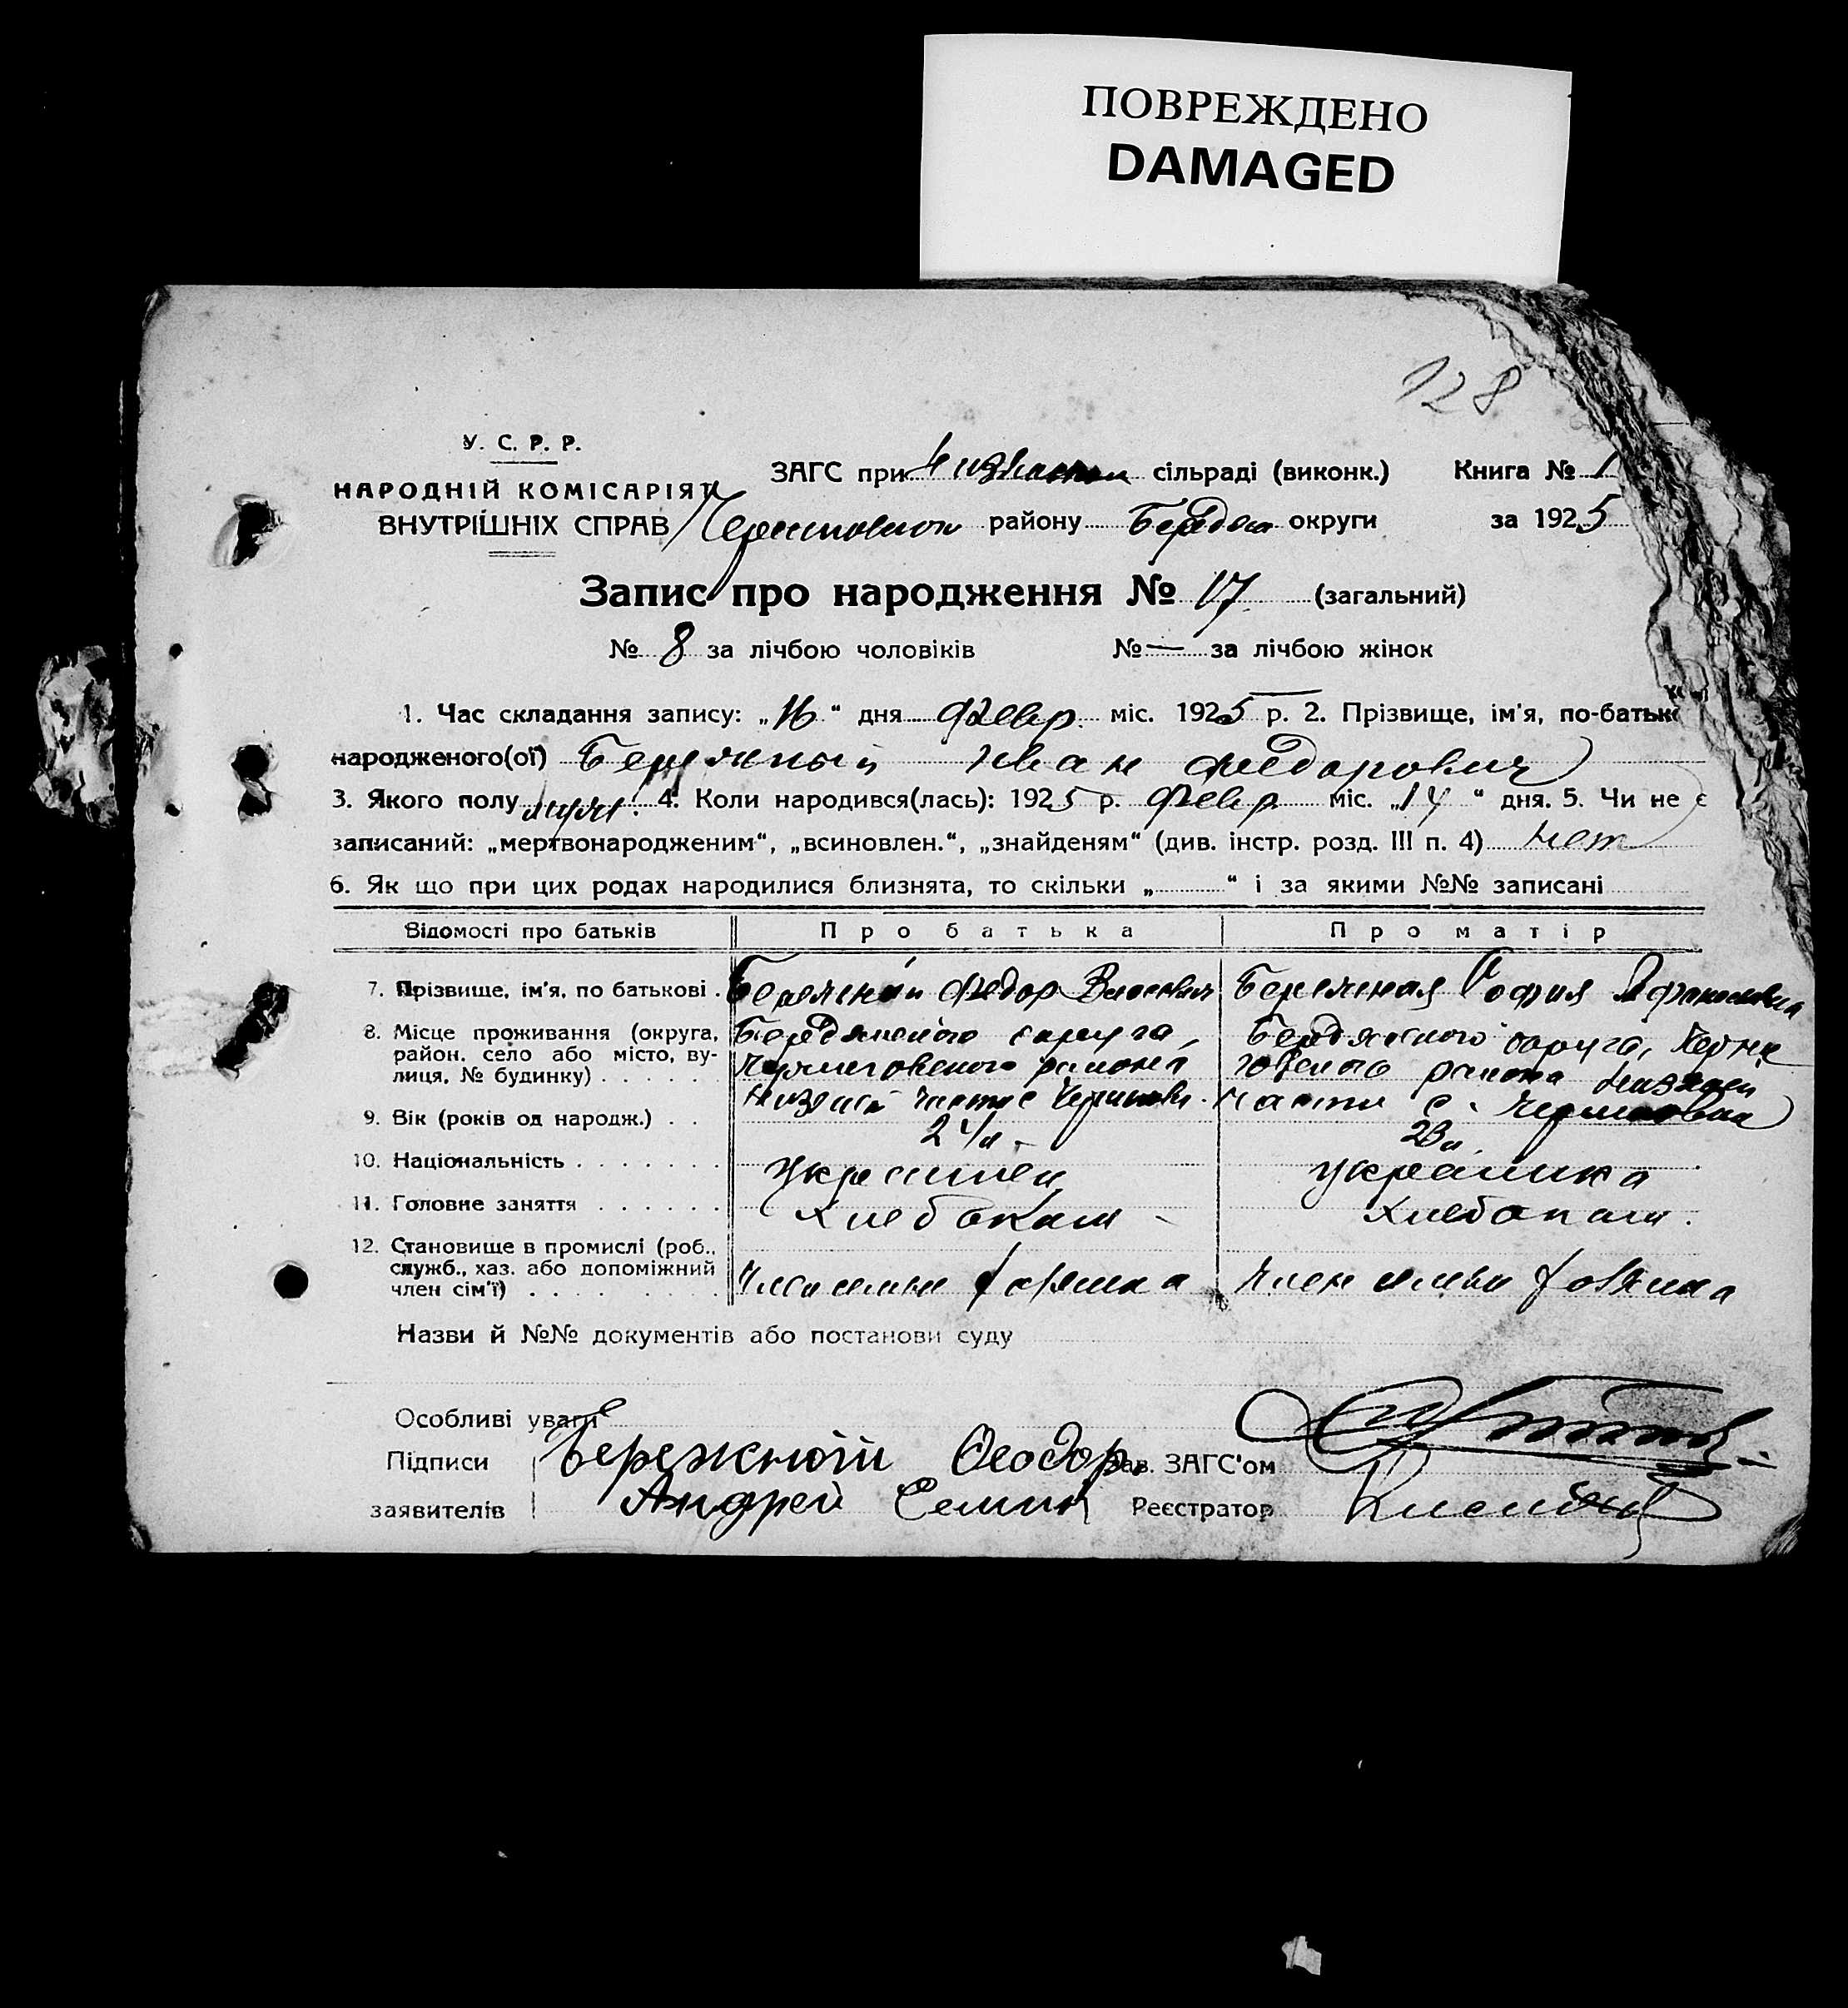 ПОВРЕЖДЕНО
DAMAGED
128
У. С. Р. Р.
НАРОДНІЙ КОМІСАРІЯТ
ВНУТРІШНІХ СПРАВ
ЗАГС при сільраді (виконк.) Книга № 1
району Бердян округи за 1925
Запис про народження № 17 (загальний)
№ 8 за лічбою чоловіків № — за лічбою жінок
1. Час складання запису: „16“ дня Февр. міс. 1925 р. 2. Прізвище, ім'я, по-батьк
народженого(ої) Бережный Иван Федорович
3. Якого полу муж. 4. Коли народився(лась): 1925 р. Февр міс. „14“ дня. 5. Чи не є
записаний: „мертвонародженим“, „всиновлен.“, „знайденям“ (див. інстр. розд. III п. 4) нет
6. Як що при цих родах народилися близнята, то скільки „ “ і за якими №№ записані
Відомості про батьків Про батька Про матір
7. Прізвище, ім'я, по батькові . Бережный Федор Бережная София
8. Місце проживання (округа, район, село або місто, вулиця, № будинку) . . . . . Бердянского округа, Черниговского района Бердянского округа, Черниговского района Низшей части с. Черниговки
9. Вік (років од народж.) . . 24 л 23 л.
10. Національність . . . . . . . Украинец Украинка
11. Головне заняття . . . . . . Хлебопаш Хлебопаш.
12. Становище в промислі (роб., служб., хаз. або допоміжний член сім'ї) . . . . . . . Член семьи хозяина Член семьи хозяина
Назви й №№ документів або постанови суду
Особливі уваги
Підписи Бережной Феодор, Зав. ЗАГС'ом
заявителів Андрей Реєстратор